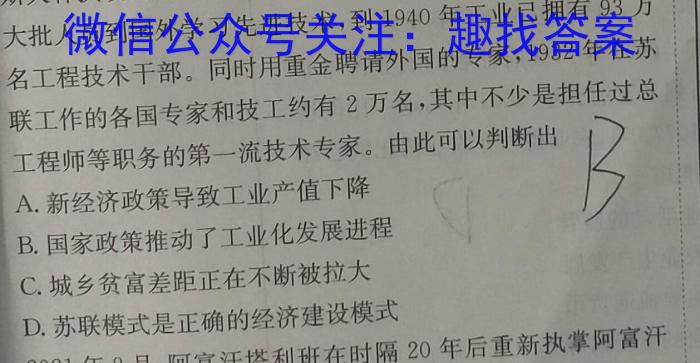 大批人
到国外学习先进技术,到1940年工业已拥有93万
微信公众号关注:趣找答案
名工程技术干部。同时用重金聘请外国的专家,1932年在苏
联工作的各国专家和技工约有2万名,其中不少是担任过总
工程师等职务的第一流技术专家。由此可以判断出
B
A. 新经济政策导致工业产值下降
B. 国家政策推动了工业化发展进程
C. 城乡贫富差距正在不断被拉大
D. 苏联模式是正确的经济建设模式
阿富汗塔利班在时隔20年后重新执掌阿富汗